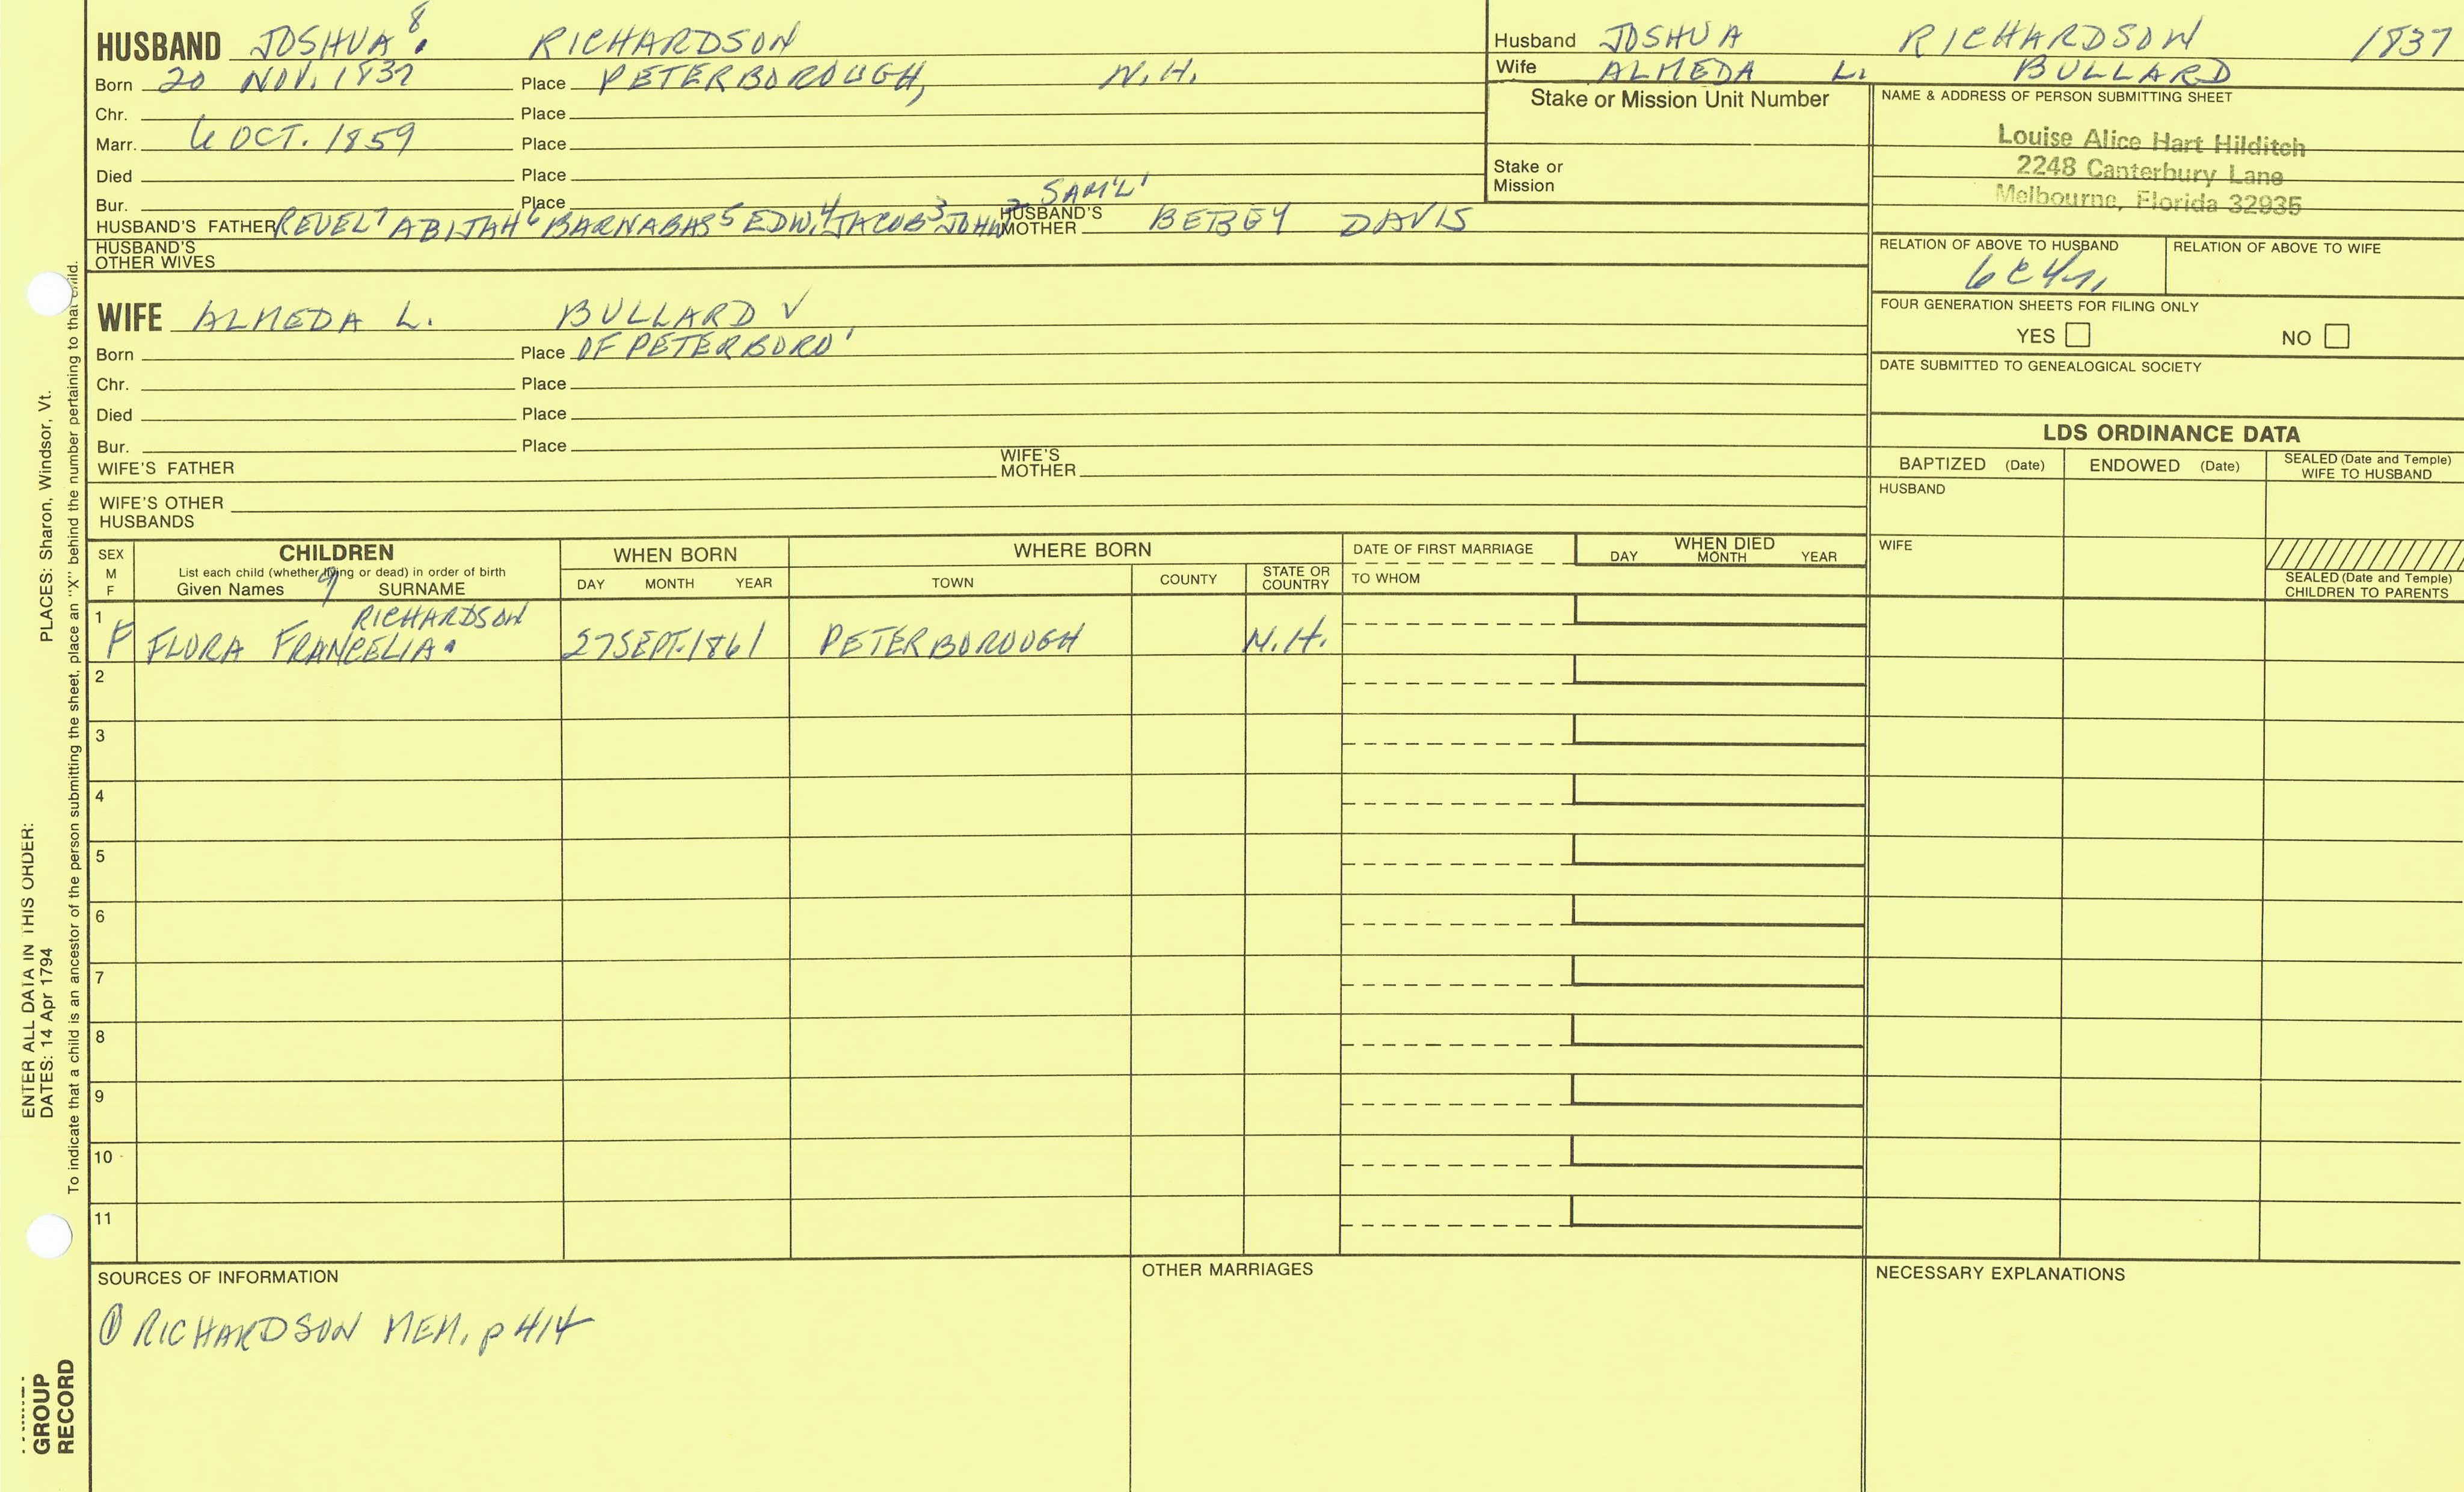 HUSBAND JOSHUA 8. RICHARDSON
Born 20 NOV. 1837 Place PETERBOROUGH, N.H.
Chr. Place
Marr. 6 OCT. 1859 Place
Died Place
Bur. Place
HUSBAND'S FATHER REUEL 7 ABIJAH 6 BARNABAS 5 EDW. 4 JACOB 3 JOHN 2 SAM'L 1 HUSBAND'S MOTHER BETSEY DAVIS
HUSBAND'S
OTHER WIVES
Husband JOSHUA RICHARDSON 1837
Wife ALMEDA L. BULLARD
Stake or Mission Unit Number
Stake or
Mission
NAME & ADDRESS OF PERSON SUBMITTING SHEET
Louise Alice Hart Hilditch
2248 Canterbury Lane
Melbourne, Florida 32935
RELATION OF ABOVE TO HUSBAND RELATION OF ABOVE TO WIFE
6C4R
FOUR GENERATION SHEETS FOR FILING ONLY
YES NO
DATE SUBMITTED TO GENEALOGICAL SOCIETY
WIFE ALMEDA L. BULLARD ✓
Born Place OF PETERBORO'
Chr. Place
Died Place
Bur. Place
WIFE'S FATHER WIFE'S MOTHER
WIFE'S OTHER
HUSBANDS
LDS ORDINANCE DATA
BAPTIZED (Date) ENDOWED (Date) SEALED (Date and Temple) WIFE TO HUSBAND
HUSBAND
WIFE
SEALED (Date and Temple)
CHILDREN TO PARENTS
SEX
M
F
CHILDREN
List each child (whether living or dead) in order of birth
Given Names SURNAME
WHEN BORN
DAY MONTH YEAR
WHERE BORN
TOWN COUNTY STATE OR COUNTRY
DATE OF FIRST MARRIAGE
TO WHOM
WHEN DIED
DAY MONTH YEAR
1 RICHARDSON
F FLORA FRANCELIA 9. 27 SEPT. 1861 PETERBOROUGH N.H.
2
3
4
5
6
7
8
9
10
11
SOURCES OF INFORMATION
① RICHARDSON MEM. p 414
OTHER MARRIAGES
NECESSARY EXPLANATIONS
ENTER ALL DATA IN THIS ORDER:
DATES: 14 Apr 1794 PLACES: Sharon, Windsor, Vt.
To indicate that a child is an ancestor of the person submitting the sheet, place an "X" behind the number pertaining to that child.
GROUP
RECORD